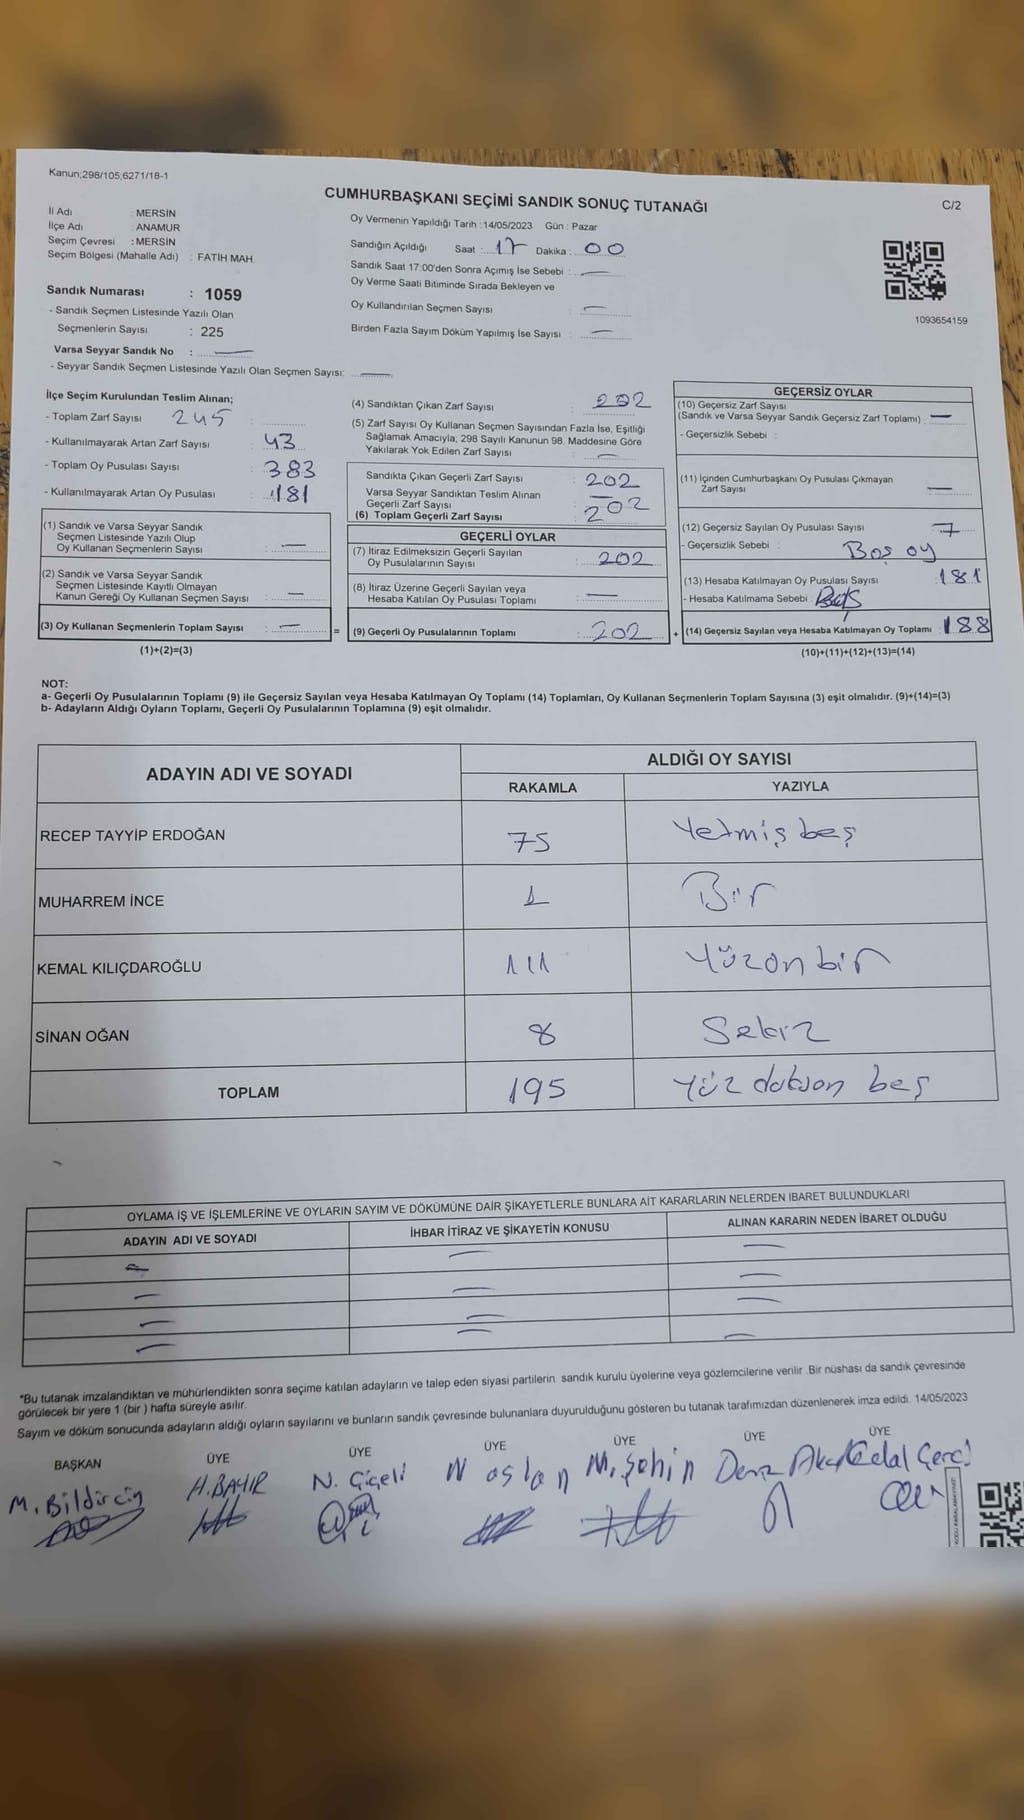 Kanun;298/105;6271/18-1
CUMHURBAŞKANI SEÇİMİ SANDIK SONUÇ TUTANAĞI
C/2
İl Adı : MERSİN
İlçe Adı : ANAMUR
Seçim Çevresi : MERSİN
Seçim Bölgesi (Mahalle Adı) : FATİH MAH.
Oy Vermenin Yapıldığı Tarih : 14/05/2023 Gün : Pazar
Sandığın Açıldığı Saat : 17 Dakika : 00
Sandık Saat 17:00'den Sonra Açımış İse Sebebi : —
Oy Verme Saati Bitiminde Sırada Bekleyen ve
Oy Kullandırılan Seçmen Sayısı : —
Birden Fazla Sayım Döküm Yapılmış İse Sayısı : —
1093654159
Sandık Numarası : 1059
- Sandık Seçmen Listesinde Yazılı Olan
Seçmenlerin Sayısı : 225
Varsa Seyyar Sandık No : —
- Seyyar Sandık Seçmen Listesinde Yazılı Olan Seçmen Sayısı: —
İlçe Seçim Kurulundan Teslim Alınan;
- Toplam Zarf Sayısı : 245
- Kullanılmayarak Artan Zarf Sayısı : 43
- Toplam Oy Pusulası Sayısı : 383
- Kullanılmayarak Artan Oy Pusulası : 181
(1) Sandık ve Varsa Seyyar Sandık
Seçmen Listesinde Yazılı Olup
Oy Kullanan Seçmenlerin Sayısı : —
(2) Sandık ve Varsa Seyyar Sandık
Seçmen Listesinde Kayıtlı Olmayan
Kanun Gereği Oy Kullanan Seçmen Sayısı : —
(3) Oy Kullanan Seçmenlerin Toplam Sayısı : —
(1)+(2)=(3)
(4) Sandıktan Çıkan Zarf Sayısı : 202
(5) Zarf Sayısı Oy Kullanan Seçmen Sayısından Fazla İse, Eşitliği
Sağlamak Amacıyla; 298 Sayılı Kanunun 98. Maddesine Göre
Yakılarak Yok Edilen Zarf Sayısı : —
Sandıkta Çıkan Geçerli Zarf Sayısı : 202
Varsa Seyyar Sandıktan Teslim Alınan
Geçerli Zarf Sayısı : —
(6) Toplam Geçerli Zarf Sayısı : 202
GEÇERLİ OYLAR
(7) İtiraz Edilmeksizin Geçerli Sayılan
Oy Pusulalarının Sayısı : 202
(8) İtiraz Üzerine Geçerli Sayılan veya
Hesaba Katılan Oy Pusulası Toplamı : —
= (9) Geçerli Oy Pusulalarının Toplamı : 202
GEÇERSİZ OYLAR
(10) Geçersiz Zarf Sayısı
(Sandık ve Varsa Seyyar Sandık Geçersiz Zarf Toplamı) : —
- Geçersizlik Sebebi :
(11) İçinden Cumhurbaşkanı Oy Pusulası Çıkmayan
Zarf Sayısı : —
(12) Geçersiz Sayılan Oy Pusulası Sayısı : 7
- Geçersizlik Sebebi : Boş oy
(13) Hesaba Katılmayan Oy Pusulası Sayısı : 181
- Hesaba Katılmama Sebebi :
+ (14) Geçersiz Sayılan veya Hesaba Katılmayan Oy Toplamı : 188
(10)+(11)+(12)+(13)=(14)
NOT:
a- Geçerli Oy Pusulalarının Toplamı (9) ile Geçersiz Sayılan veya Hesaba Katılmayan Oy Toplamı (14) Toplamları, Oy Kullanan Seçmenlerin Toplam Sayısına (3) eşit olmalıdır. (9)+(14)=(3)
b- Adayların Aldığı Oyların Toplamı, Geçerli Oy Pusulalarının Toplamına (9) eşit olmalıdır.
ADAYIN ADI VE SOYADI
ALDIĞI OY SAYISI
RAKAMLA YAZIYLA
RECEP TAYYİP ERDOĞAN 75 Yetmiş beş
MUHARREM İNCE 1 Bir
KEMAL KILIÇDAROĞLU 111 Yüzonbir
SİNAN OĞAN 8 Sekiz
TOPLAM 195 Yüz doksan beş
OYLAMA İŞ VE İŞLEMLERİNE VE OYLARIN SAYIM VE DÖKÜMÜNE DAİR ŞİKAYETLERLE BUNLARA AİT KARARLARIN NELERDEN İBARET BULUNDUKLARI
ADAYIN ADI VE SOYADI İHBAR İTİRAZ VE ŞİKAYETİN KONUSU ALINAN KARARIN NEDEN İBARET OLDUĞU
*Bu tutanak imzalandıktan ve mühürlendikten sonra seçime katılan adayların ve talep eden siyasi partilerin sandık kurulu üyelerine veya gözlemcilerine verilir. Bir nüshası da sandık çevresinde
görülecek bir yere 1 (bir ) hafta süreyle asılır.
Sayım ve döküm sonucunda adayların aldığı oyların sayılarını ve bunların sandık çevresinde bulunanlara duyurulduğunu gösteren bu tutanak tarafımızdan düzenlenerek imza edildi. 14/05/2023
BAŞKAN ÜYE ÜYE ÜYE ÜYE ÜYE ÜYE
M. Bildircin H. BAYIR N. Çiçeli N aslan M. Şahin Deniz